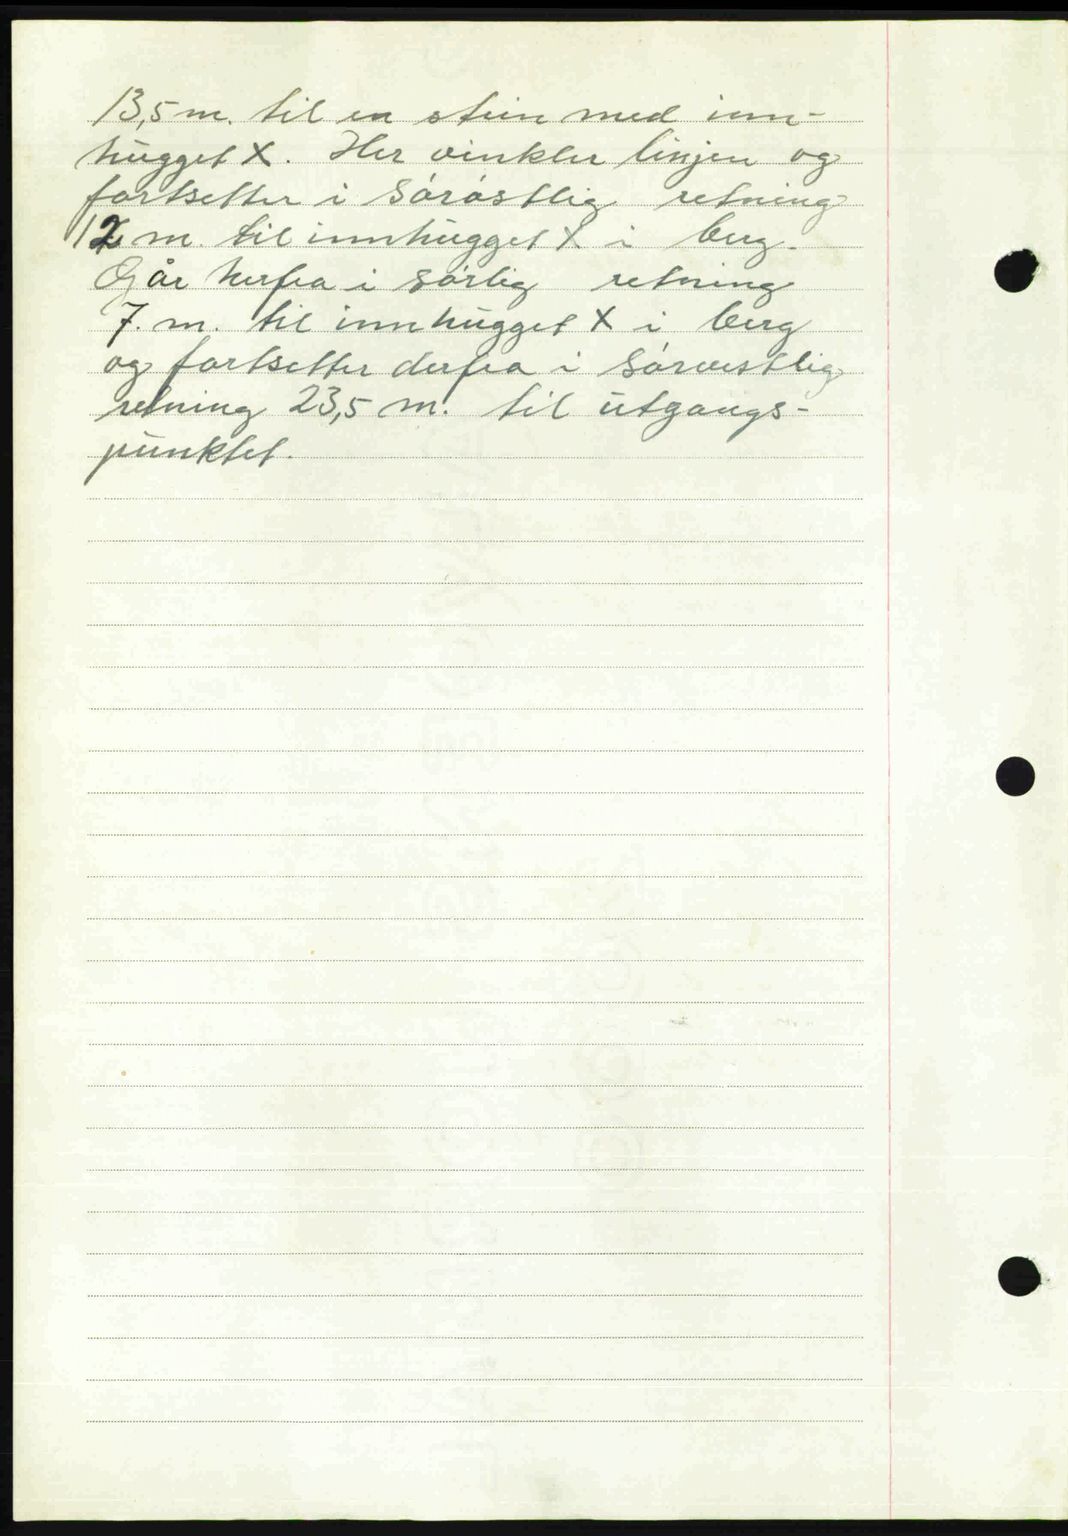 13,5 m. til en stein med inn-
hugget X. Her vinkler linjen og
fortsetter i sørøstlig retning
12 m. til innhugget X i berg.
Går herfra i sørlig retning
7. m. til innhugget X i berg
og fortsetter derfra i sørvestlig
retning 23,5 m. til utgangs-
punktet.